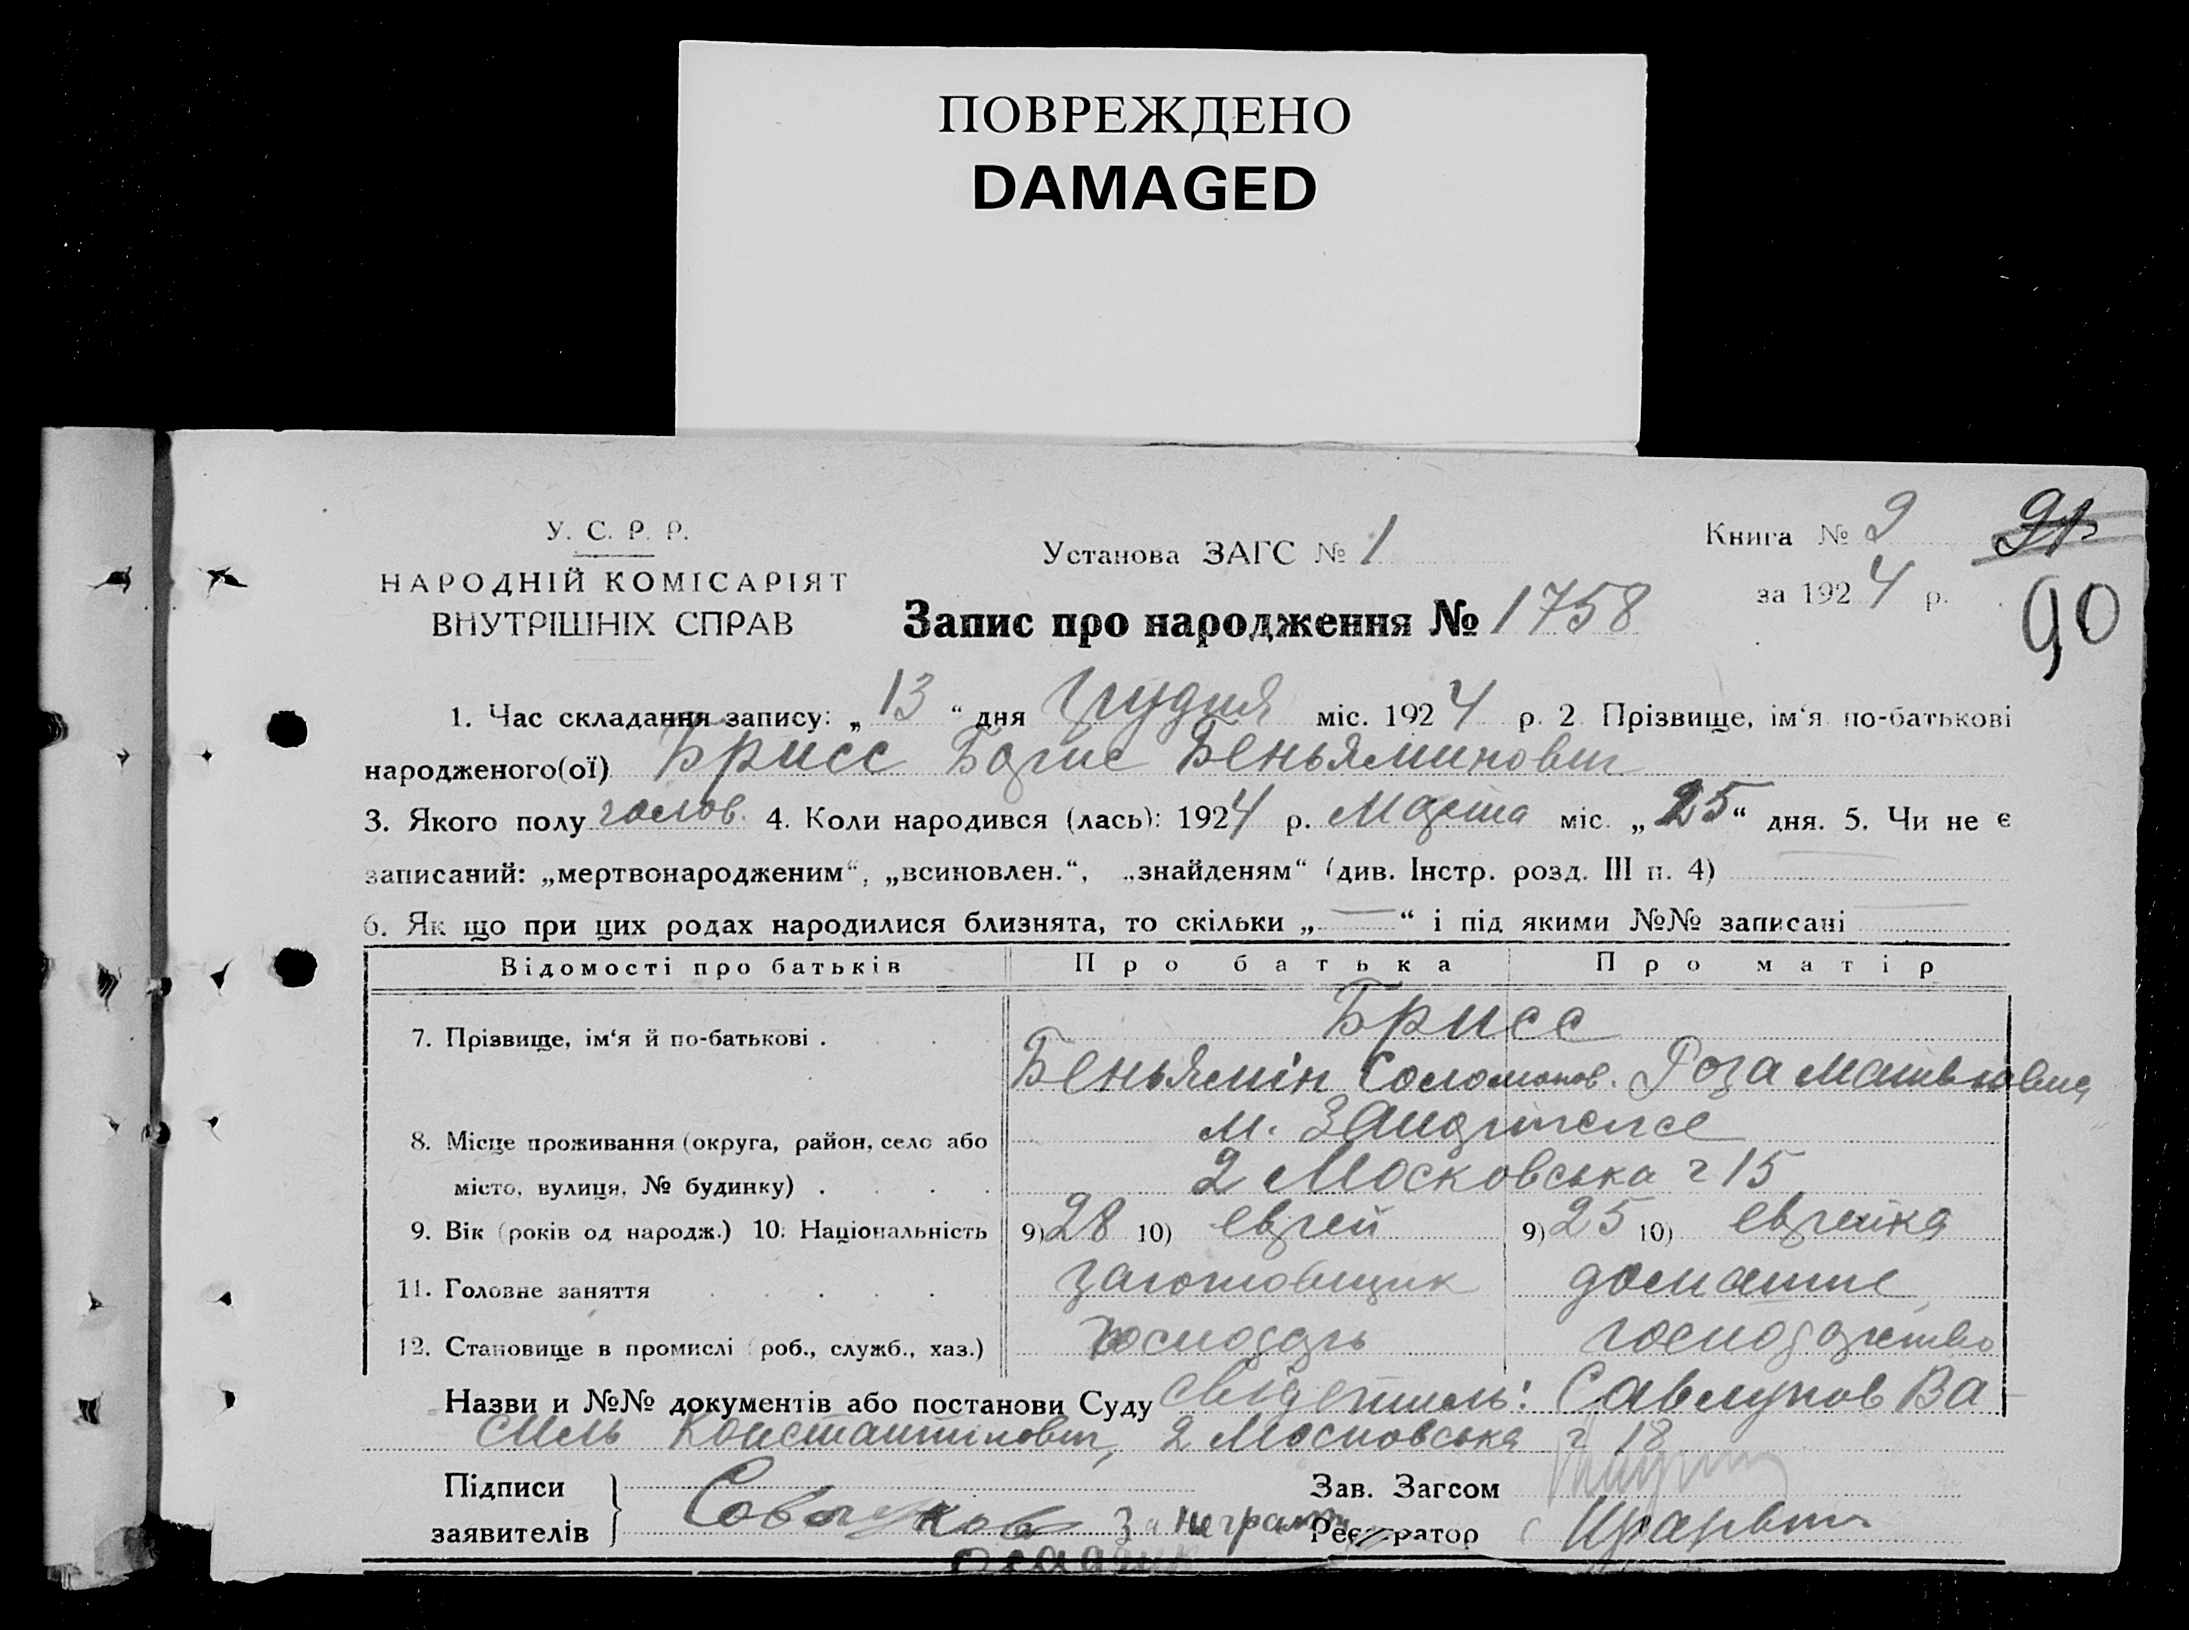 ПОВРЕЖДЕНО
DAMAGED
У. С. Р. Р.
НАРОДНІЙ КОМІСАРІЯТ
ВНУТРІШНІХ СПРАВ
Установа ЗАГС № 1
Книга № 9
91
за 1924 р.
90
Запис про народження № 1758
1. Час складання запису: „13“ дня Грудня міс. 1924 р. 2 Прізвище, ім‘я по-батькові
народженого(ої) Брисс Борис Беньяминович
3. Якого полу голов. 4. Коли народився (лась): 1924 р. Марта міс. „25“ дня. 5. Чи не є
записаний: „мертвонародженим“, „всиновлен.“, „знайденям“ (див. Інстр. розд. III п. 4)
6. Як що при цих родах народилися близнята, то скільки „—“ і під якими №№ записані —
Відомості про батьків Про батька Про матір
7. Прізвище, ім‘я й по-батькові . Брисс
Беньямін Соломонов. Роза
8. Місце проживання (округа, район, село або м.
місто, вулиця, № будинку) . 2 Московська ч 15
9. Вік (років од народж.) 10. Національність 9) 28 10) еврей 9) 25 10) еврейка
11. Головне заняття заготовщик домашнє
12. Становище в промислі (роб., служб., хаз.) господарь господарство
Назви и №№ документів або постанови Суду Свідетель: Савлуков Ва
силь Константінович, 2 Московська ч 18
Підписи Зав. Загсом
заявителів } Савлуков за неграм Реєстратор